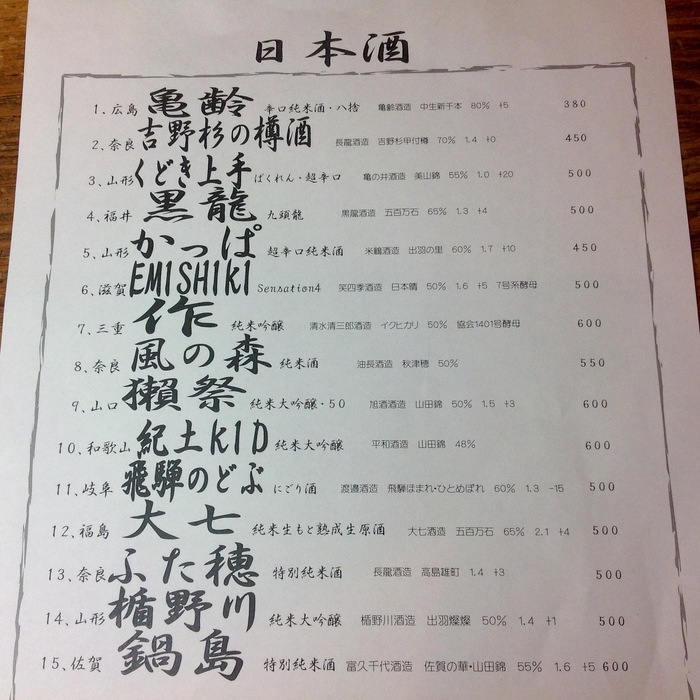 日本酒
1、広島 亀齢 辛口純米酒・八拾 亀齢酒造 中生新千本 80% +5 380
2、奈良 吉野杉の樽酒 長龍酒造 吉野杉甲付樽 70% 1.4 ±0 450
3、山形 くどき上手 ばくれん・超辛口 亀の井酒造 美山錦 55% 1.0 +20 500
4、福井 黒龍 九頭龍 黒龍酒造 五百万石 65% 1.3 +4 500
5、山形 かっぱ 超辛口純米酒 米鶴酒造 出羽の里 60% 1.7 +10 450
6、滋賀 EMISHIKI Sensation4 笑四季酒造 日本晴 50% 1.6 +5 7号系酵母 500
7、三重 作 純米吟醸 清水清三郎酒造 イクヒカリ 50% 協会1401号酵母 600
8、奈良 風の森 純米酒 油長酒造 秋津穂 50% 550
9、山口 獺祭 純米大吟醸・50 旭酒酒造 山田錦 50% 1.5 +3 600
10、和歌山 紀土KID 純米大吟醸 平和酒造 山田錦 48% 600
11、岐阜 飛騨のどぶ にごり酒 渡邉酒造 飛騨ほまれ・ひとめぼれ 60% 1.3 -15 500
12、福島 大七 純米生もと熟成生原酒 大七酒造 五百万石 65% 2.1 +4 500
13、奈良 ふた穂 特別純米酒 長龍酒造 高島雄町 1.4 +3 500
14、山形 楯野川 純米大吟醸 楯野川酒造 出羽燦燦 50% 1.4 +1 500
15、佐賀 鍋島 特別純米酒 富久千代酒造 佐賀の華・山田錦 55% 1.6 +5 600